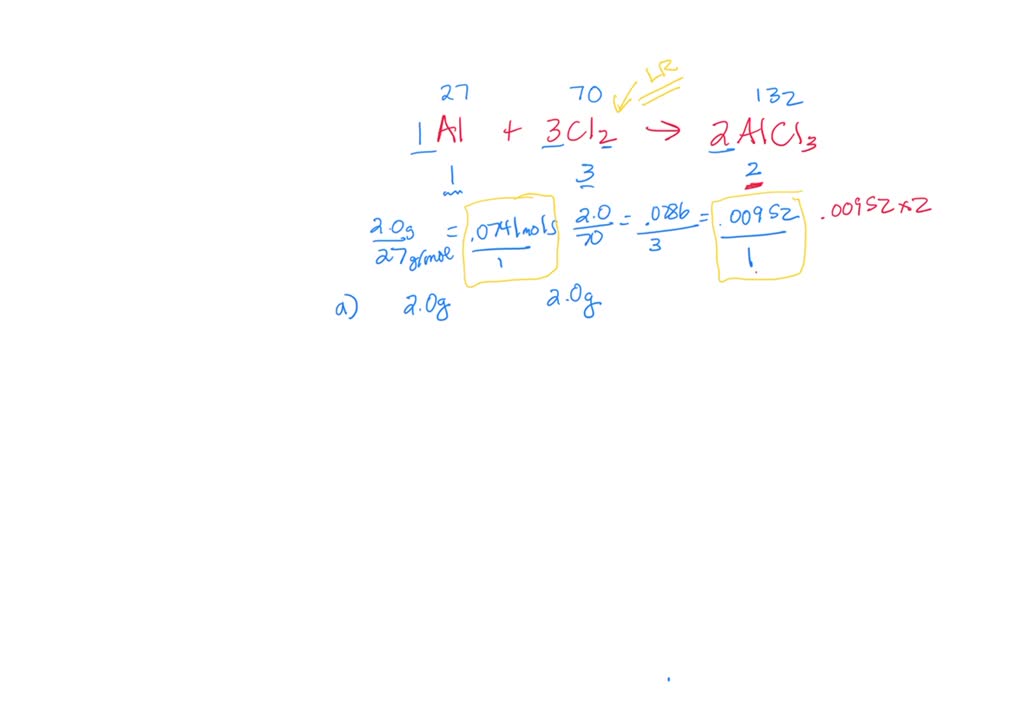 LR
27 70 132
1 Al + 3Cl2 → 2AlCl3
1 3 2
2.0g/27 g/mole = .0741mols/1 2.0/70 = .0786/3 = .00952/1 .00952x2
a) 2.0g 2.0g